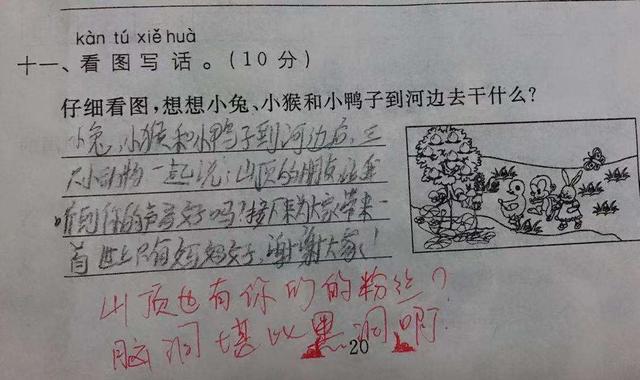 kàn tú xiě huà
十一、看图写话。(10分)
仔细看图,想想小兔、小猴和小鸭子到河边去干什么?
小兔、小猴和小鸭子到河边后,三
只小动物一起说:山顶的朋友让我
听到你的声音好吗?接下来为大家带来一
首世上只有妈妈好,谢谢大家!
山顶也有你们的粉丝?
脑洞堪比黑洞啊!
20